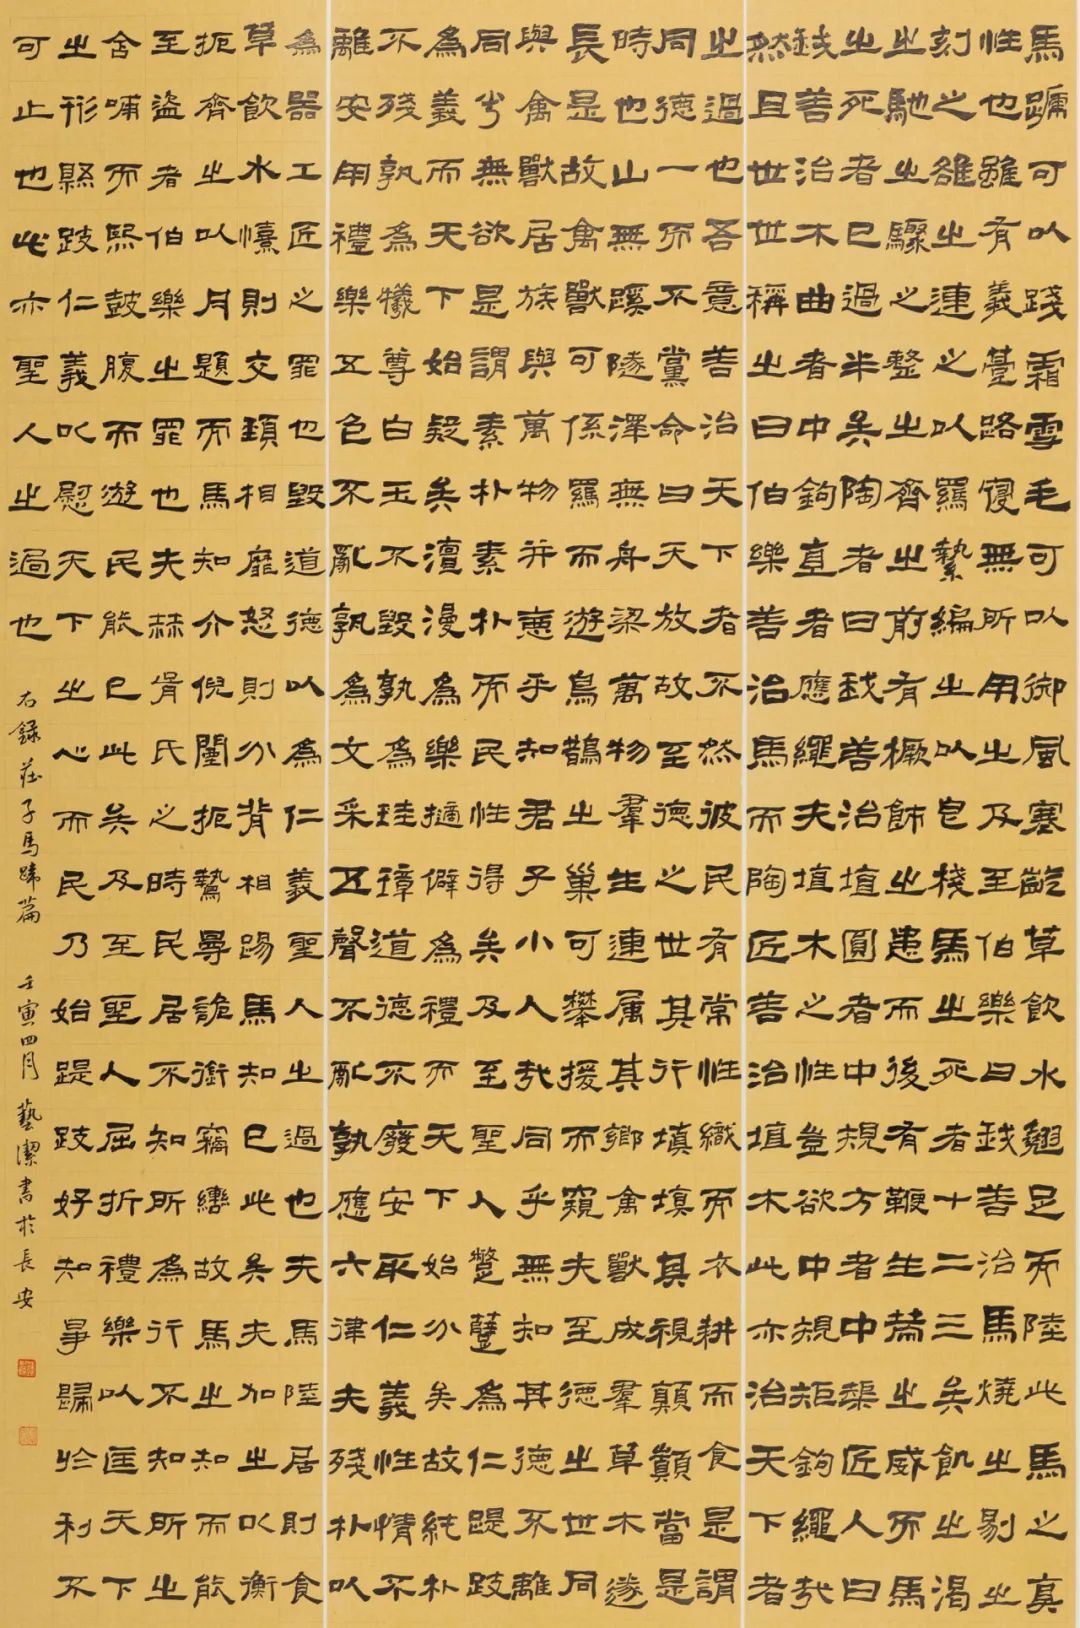 馬蹏可以踐霜雪毛可以御風寒齕草飲水翹足而陸此馬之真
性也雖有義臺路寢無所用之及至伯樂曰我善治馬燒之剔之
刻之雒之連之以羈縶編之以皂棧馬之死者十二三矣飢之渴
之馳之驟之整之齊之前有橛飾之患而後有鞭生筴之威而馬
之死者已過半矣陶者曰我善治埴圓者中規方者中榘匠人曰
我善治木曲者中鉤直者應繩夫埴木之性豈欲中規矩鉤繩哉
然且世世稱之曰伯樂善治馬而陶匠善治埴木此亦治天下者
之過也吾意善治天下者不然彼民有常性織而衣耕而食是謂
同德一而不黨命曰天放故至德之世其行填填其視顛顛當是
時也山無蹊隧澤無舟梁萬物羣生連属其鄉禽獸成羣草木遂
長是故禽獸可係羈而遊鳥鵲之巢可攀援而窺夫至德之世同
與禽獸居族與萬物并惡乎知君子小人哉同乎無知其德不離
同乎無欲是謂素朴素朴而民性得矣及至聖人蹩躠為仁踶跂
為義而天下始疑矣澶漫為樂摘僻為禮而天下始分矣故純朴
不殘孰為犧尊白玉不毀孰為珪璋道德不廢安取仁義性情不
離安用禮樂五色不亂孰為文采五聲不亂孰應六律夫殘朴以
為器工匠之罪也毀道德以為仁義聖人之過也夫馬陸居則食
草飲水憙則交頸相靡怒則分背相踢馬知已此矣夫加之以衡
扼齊之以月題而馬知介倪闉扼鷙曼詭銜竊轡故馬之知而能
至盜者伯樂之罪也夫赫胥氏之時民居不知所為行不知所之
含哺而熙鼓腹而遊民能已此矣及至聖人屈折禮樂以匡天下
之形縣跂仁義以慰天下之心而民乃始踶跂好知爭歸於利不
可止也此亦聖人之過也 右錄莊子馬蹄篇 壬寅四月 藝潔書於長安